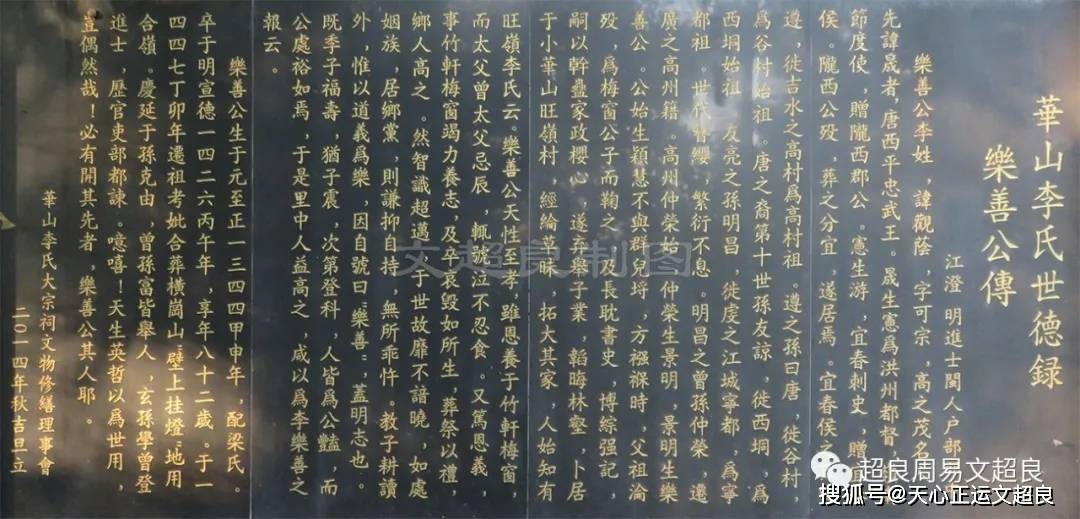 華山李氏世德録
樂善公傳
江澄 明進士閩人户部
樂善公李姓，諱觀蔭，字可宗，高之茂名
先諱晟者，唐西平忠武王。晟生憲爲洪州都督，
節度使，贈隴西郡公。憲生游，宜春刺史，贈
侯。隴西公殁，葬之分宜，遂居焉。宜春侯之
遵，徙吉水之高村爲高村祖。遵之孫曰唐，徙谷村，
爲谷村始祖。唐之裔第十世孫友諒，徙西垌，爲
西垌始祖。友亮之孫明昌，徙虔之江城寧都，爲寧
都祖。世代簪纓，繁衍不息。明昌之曾孫仲榮，遷
廣之高州籍。高州仲榮始，仲榮生景明，景明生樂
善公。公始生穎慧不與群兒埒，方襁褓時，父祖淪
殁，爲梅窗公子而鞠之。及長耽書史，博綜强記，
嗣以幹蠱家政櫻心，遂弃舉子業，韜晦林壑，卜居
于小華山旺嶺村，經綸草昧，拓大其家，人始知有
旺嶺李氏云。樂善公天性至孝，雖恩養子竹軒梅窗，
而太父曾太父忌辰，輒號泣不忍食。又篤恩義，
事竹軒梅窗竭力養志，及卒哀毁如所生，葬祭以禮，
鄉人高之。然智識超邁，于世故靡不諳曉，如處
姻族，居鄉黨，則謙抑自持，無所乖忤。教子耕讀
外，惟以道義爲樂，因自號曰：樂善；蓋明志也。
既季子福壽，猶子震，次第登科，人皆爲公豔，而
公處裕如焉，于是里中人益高之，咸以爲李樂善之
報云。
樂善公生于元至正一三四四甲申年，配梁氏。
卒于明宣德一四二六丙午年，享年八十二歲。于一
四四七丁卯年遷祖考妣合葬横崗山“壁上挂燈”地用
合嶺。慶延于孫克由，曾孫富皆舉人，玄孫學曾登
進士，歷官吏部都諫。噫嘻！天生英哲以爲世用，
豈偶然哉！必有開其先者，樂善公其人耶。
華山李氏大宗祠文物修繕理事會
二〇一四年秋吉旦立
文超良制图
超良周易文超良
搜狐号@天心正运文超良